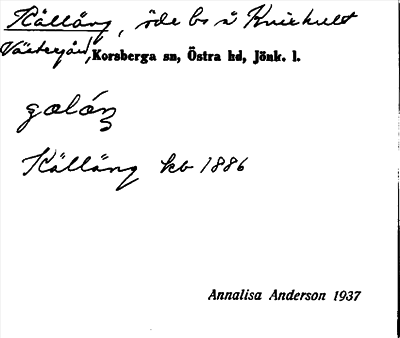 Källäng, öde bs å Knivhult
Västergård, Korsberga sn, Östra hd, Jönk. l.
Källäng kb 1886
Annalisa Anderson 1937